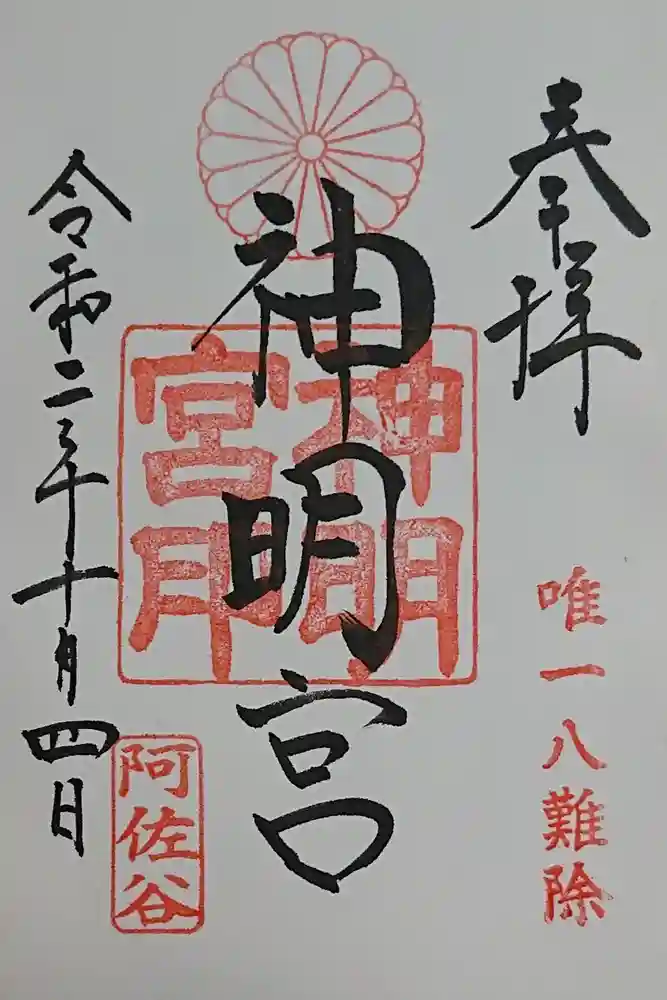 奉拝
唯一八難除
神明宮
神明宮印
令和二年十月四日
阿佐谷